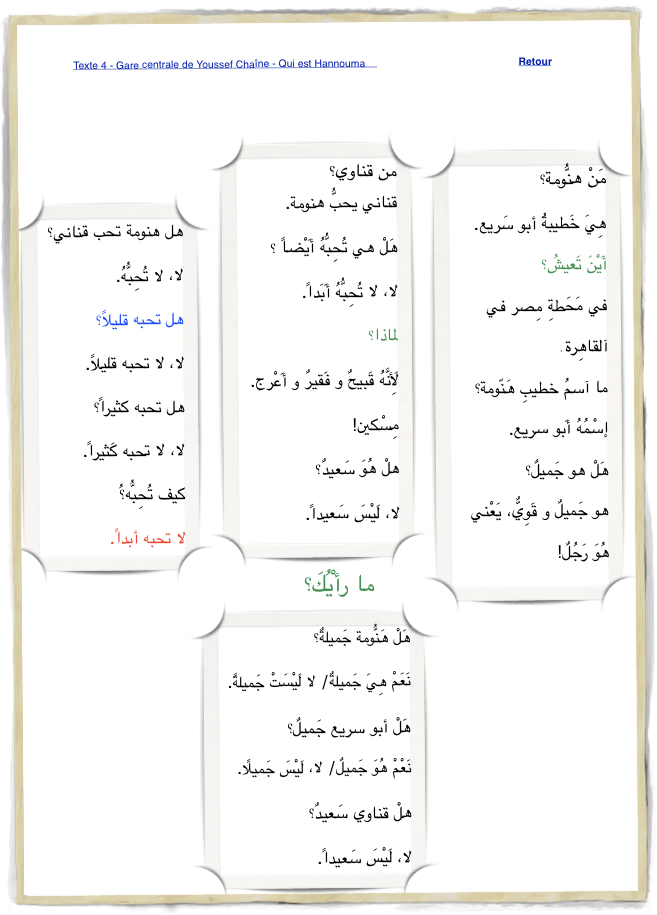 Texte 4 - Gare centrale de Youssef Chaîne - Qui est Hannouma
Retour
مَنْ هنُّومة؟
هِيَ خَطيبةُ أبو سَريع.
أَيْنَ تَعيشُ؟
في مَحَطةِ مِصر في
اَلقاهِرة.
ما اَسمُ خطيبِ هَنّومة؟
إسْمُهُ أَبو سريع.
هَلْ هو جَميلٌ؟
هو جَميلٌ و قَوِيٌّ، يَعْني
هُوَ رَجُلٌ!
من قناوي؟
قناني يحبُّ هنومة.
هَلْ هي تُحِبُّهُ أَيْضاً ؟
لا، لا تُحِبُّهُ أَبَداً.
لماذا؟
لَأِنَّهُ قَبيحٌ و فَقيرٌ و أَعْرج.
مِسْكين!
هلْ هُوَ سَعيدٌ؟
لا، لَيْسَ سَعيداً.
هل هنومة تحب قناني؟
لا، لا تُحِبُّهُ.
هل تحبه قليلاً؟
لا، لا تحبه قليلاً.
هل تحبه كثيراً؟
لا، لا تحبه كَثيراً.
كيف تُحِبُّهُ؟
لا تحبه أبداً.
ما رأْيُكَ؟
هَلْ هَنُّومة جَميلةٌ؟
نَعَمْ هِيَ جَميلةٌ/ لا لَيْسَتْ جَميلةً.
هَلْ أبو سريع جَميلٌ؟
نَعْمْ هُوَ جَميلٌ/ لا، لَيْسَ جَميلًا.
هلْ قناوي سَعيدٌ؟
لا، لَيْسَ سَعيداً.